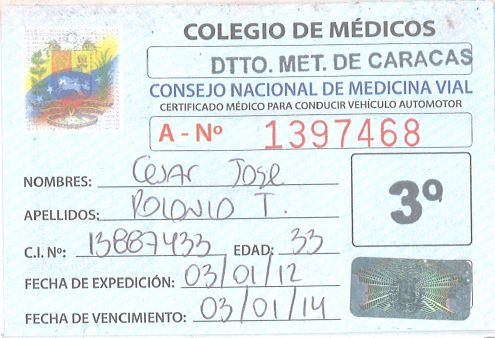 COLEGIO DE MÉDICOS
DTTO. MET. DE CARACAS
CONSEJO NACIONAL DE MEDICINA VIAL
CERTIFICADO MÉDICO PARA CONDUCIR VEHÍCULO AUTOMOTOR
A - Nº 1397468
NOMBRES: Cesar Jose
APELLIDOS: Polonio T.
3º
C.I. Nº: 13887433 EDAD: 33
FECHA DE EXPEDICIÓN: 03/01/12
FECHA DE VENCIMIENTO: 03/01/14